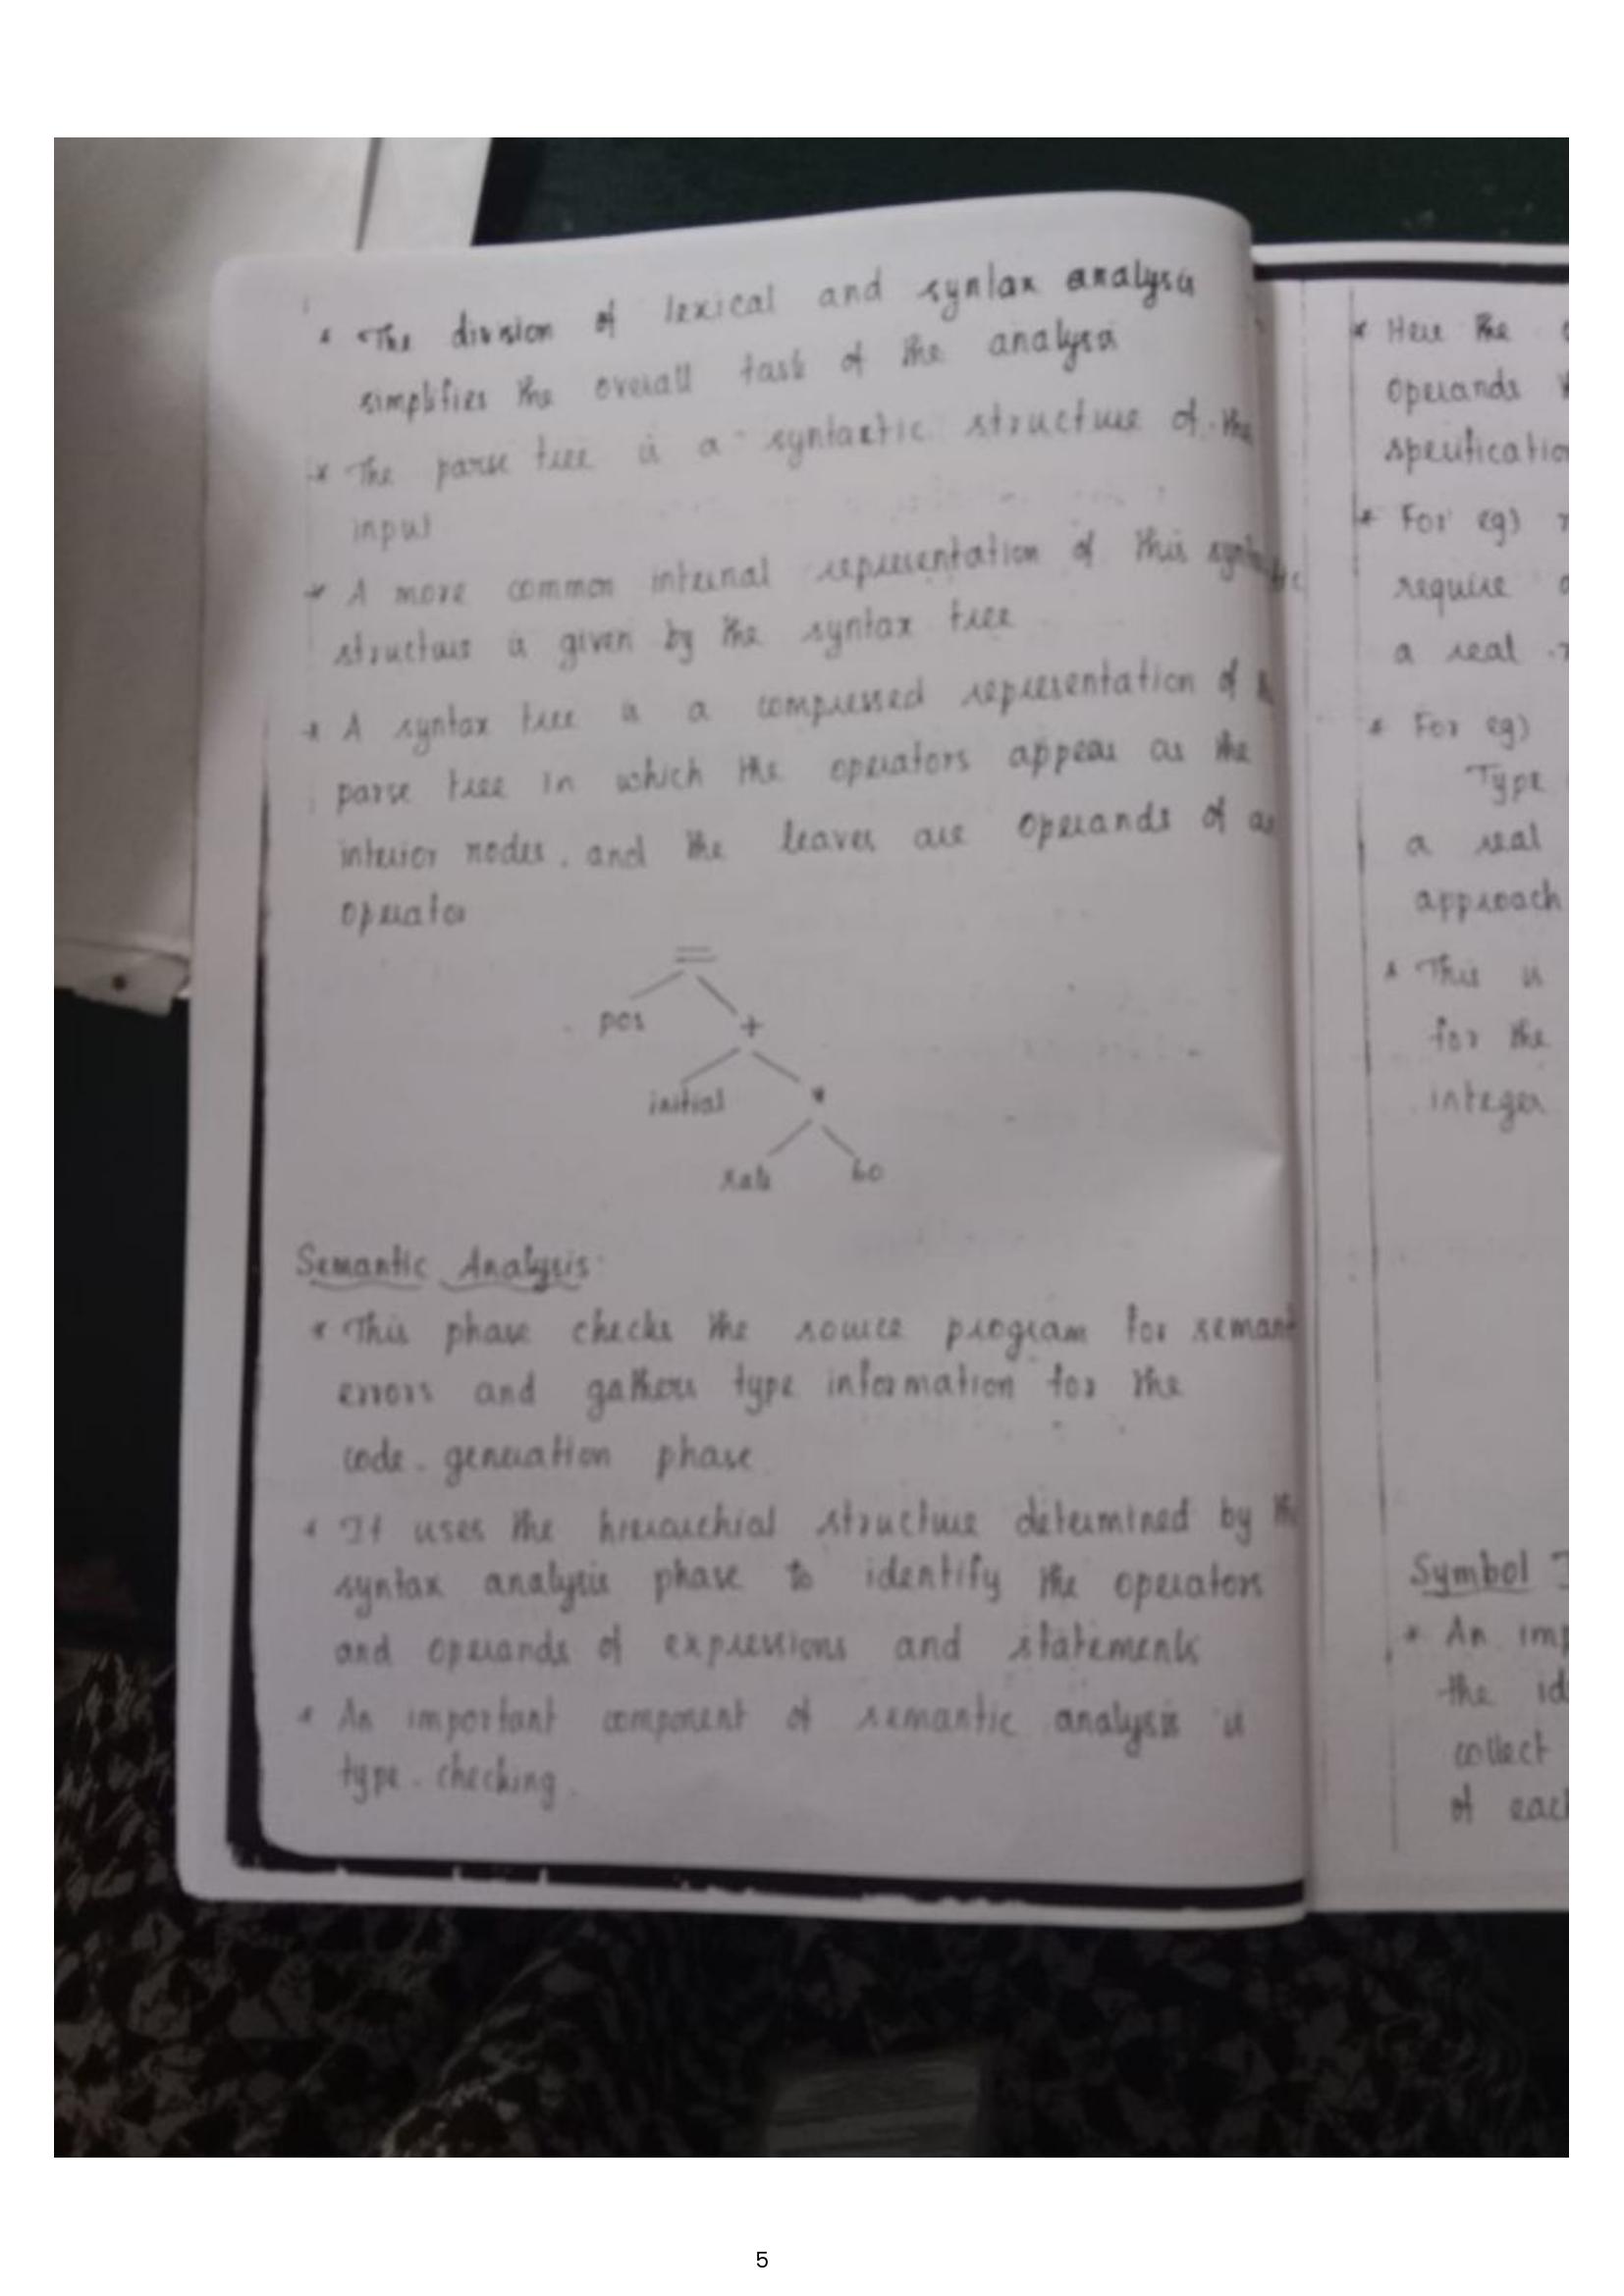 * The division of lexical and syntax analysis
simplifies the overall task of the analysis
* The parse tree is a syntactic structure of the
input
* A more common internal representation of this syntactic
structure is given by the syntax tree
* A syntax tree is a compressed representation of
parse tree in which the operators appear as the
interior nodes, and the leaves are operands of an
operator
=
pos +
initial *
rate 60
Semantic Analysis:
* This phase checks the source program for semant
errors and gathers type information for the
code-generation phase
* It uses the hierarchial structure determined by th
syntax analysis phase to identify the operators
and operands of expressions and statements
* An important component of semantic analysis is
type-checking.
* Here the
operands
specification
* For eg)
require
a real
* For eg)
Type
a real
approach
* This is
for the
integer
Symbol
* An imp
the id
collect
of each
5